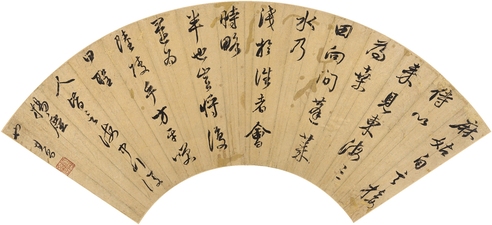 麻姑自言接
待以
來見東海三
為桑
田向間蓬萊
水乃
淺於往者會
時略
半也豈將復
還為
陸陵乎方平笑
曰聖
人皆言海中行復
揚塵
也